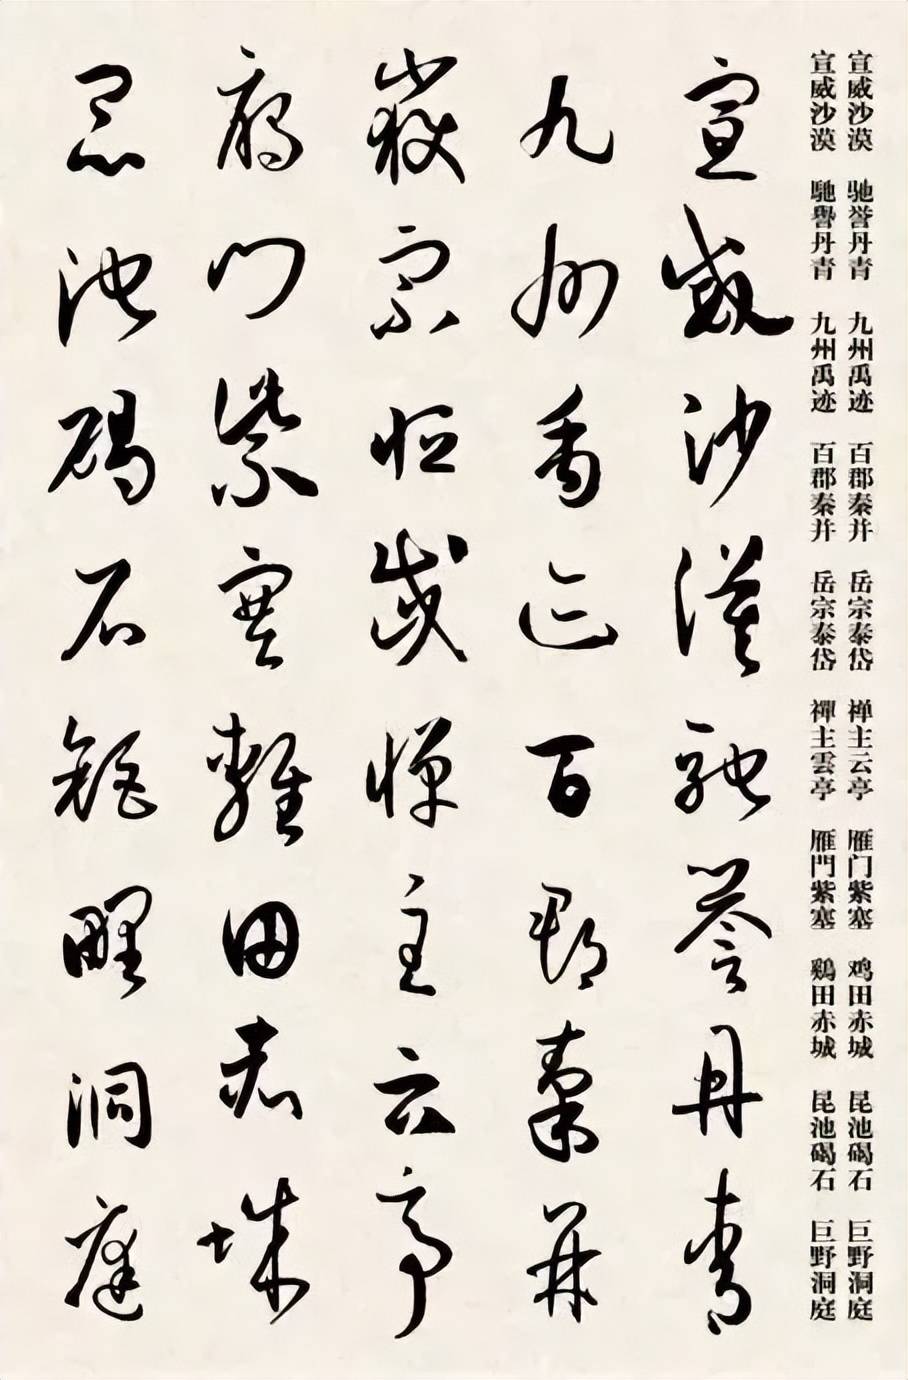 宣威沙漠 驰誉丹青 九州禹迹 百郡秦并 岳宗泰岱 禅主云亭 雁门紫塞 鸡田赤城 昆池碣石 巨野洞庭
宣威沙漠 馳譽丹青 九州禹迹 百郡秦并 岳宗泰岱 禪主雲亭 雁門紫塞 鷄田赤城 昆池碣石 巨野洞庭
宣威沙漠馳譽丹青
九州禹迹百郡秦并
嶽宗恒岱禪主云亭
雁門紫塞雞田赤城
昆池碣石鉅野洞庭